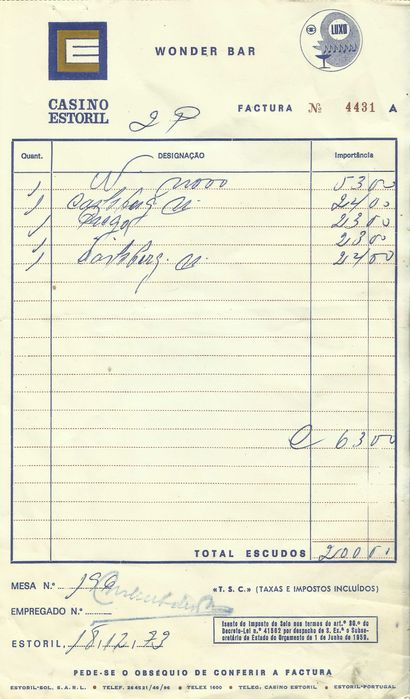 WONDER BAR
LUXO
CASINO
ESTORIL
FACTURA Nº 4431 A
2 P
Quant. DESIGNAÇÃO Importância
1 W novo 5300
1 Carlsberg 2400
1 2300
2300
1 Carlsberg 2400
6300
TOTAL ESCUDOS 20000
MESA N.º 196
«T. S. C.» (TAXAS E IMPOSTOS INCLUÍDOS)
EMPREGADO N.º
Isento do Imposto do Selo nos termos do art.º 80.º do
Decreto-Lei n.º 41562 por despacho de S. Ex.ª o Subse-
cretário de Estado do Orçamento de 1 de Junho de 1959.
ESTORIL, 18,12,73
PEDE-SE O OBSÉQUIO DE CONFERIR A FACTURA
ESTORIL-SOL, S.A.R.L. • TELEF. 264521/46/96 • TELEX 1600 • TELEG. CASINO ESTORIL • ESTORIL-PORTUGAL